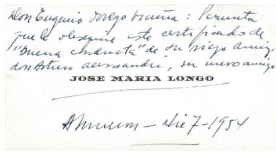 Don Eugenio Orrego Vicuña: Permita
que le obsequie este certificado de
"buena conducta" de su viejo amigo
don Arturo Alessandri, su nuevo amigo
JOSE MARIA LONGO
Dic 7 - 1954